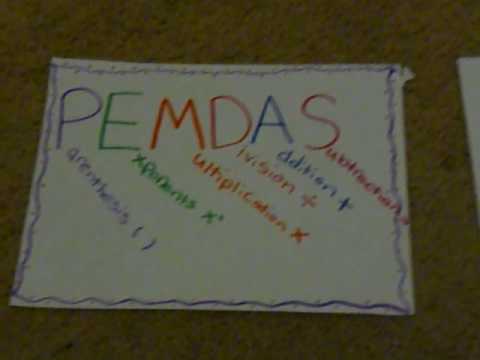 PEMDAS
arenthesis ( )
xponents x²
ultiplication x
ivision ÷
ddition +
ubtraction -